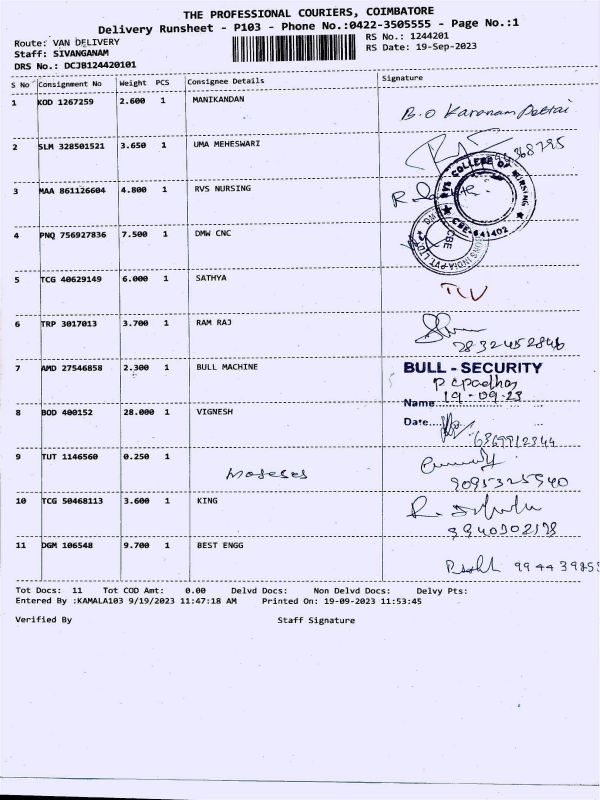 THE PROFESSIONAL COURIERS, COIMBATORE
Delivery Runsheet - P103 - Phone No.:0422-3505555 - Page No.:1
Route: VAN DELIVERY RS No.: 1244201
Staff: SIVANGANAM RS Date: 19-Sep-2023
DRS No.: DCJB124420101
S No Consignment No Weight PCS Consignee Details Signature
1 KOD 1267259 2.600 1 MANIKANDAN
2 SLM 328501521 3.650 1 UMA MEHESWARI
3 MAA 861126604 4.800 1 RVS NURSING
RVS COLLEGE OF NURSING
CBE-641402
4 PNQ 756927836 7.500 1 DMW CNC
5 TCG 40629149 6.000 1 SATHYA
6 TRP 3017013 3.700 1 RAM RAJ
7 AMD 27546858 2.300 1 BULL MACHINE BULL - SECURITY
Name 19-09-23
Date
8 BOD 400152 28.000 1 VIGNESH
9 TUT 1146560 0.250 1 Moseses
9095325940
10 TCG 50468113 3.600 1 KING
11 DGM 106548 9.700 1 BEST ENGG
Tot Docs: 11 Tot COD Amt: 0.00 Delvd Docs: Non Delvd Docs: Delvy Pts:
Entered By :KAMALA103 9/19/2023 11:47:18 AM Printed On: 19-09-2023 11:53:45
Verified By Staff Signature